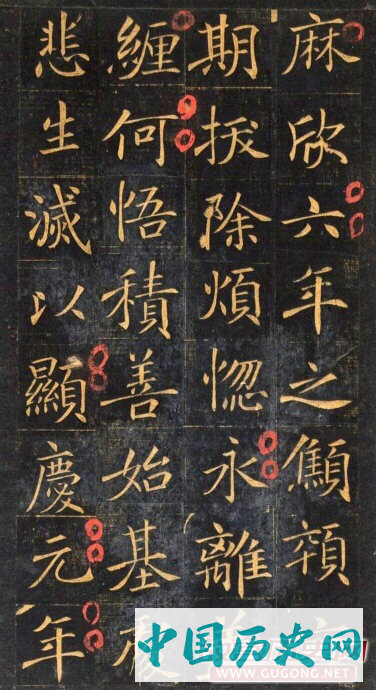 麻欣六年之顦顇
期拔除煩惚永離
纏何悟積善始基
悲生滅以顯慶元年
中国历史网
WWW.GUGONG.NET